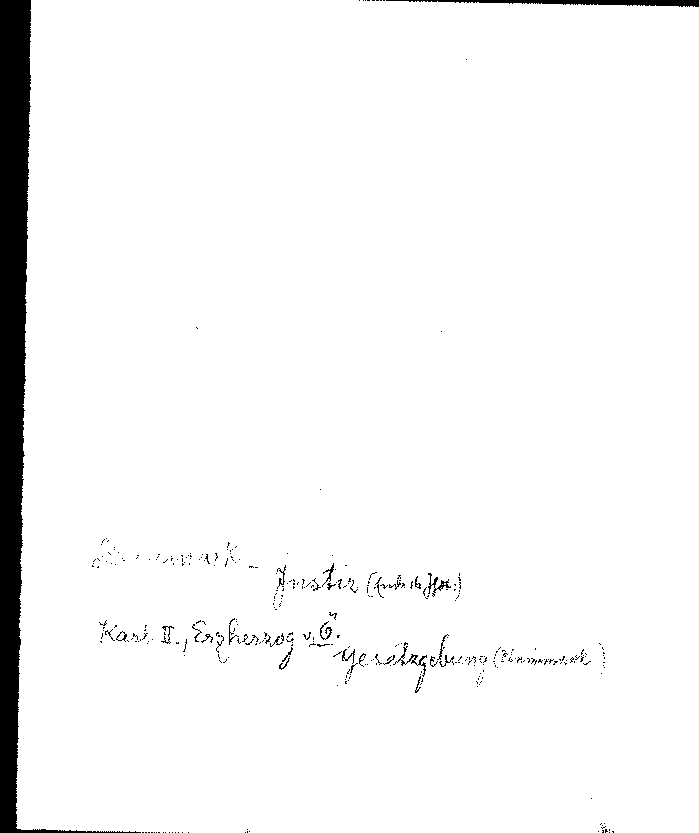 Steiermark -
Justiz
Karl II., Erzherzog v. Ö.
Gesetzgebung (Steiermark)